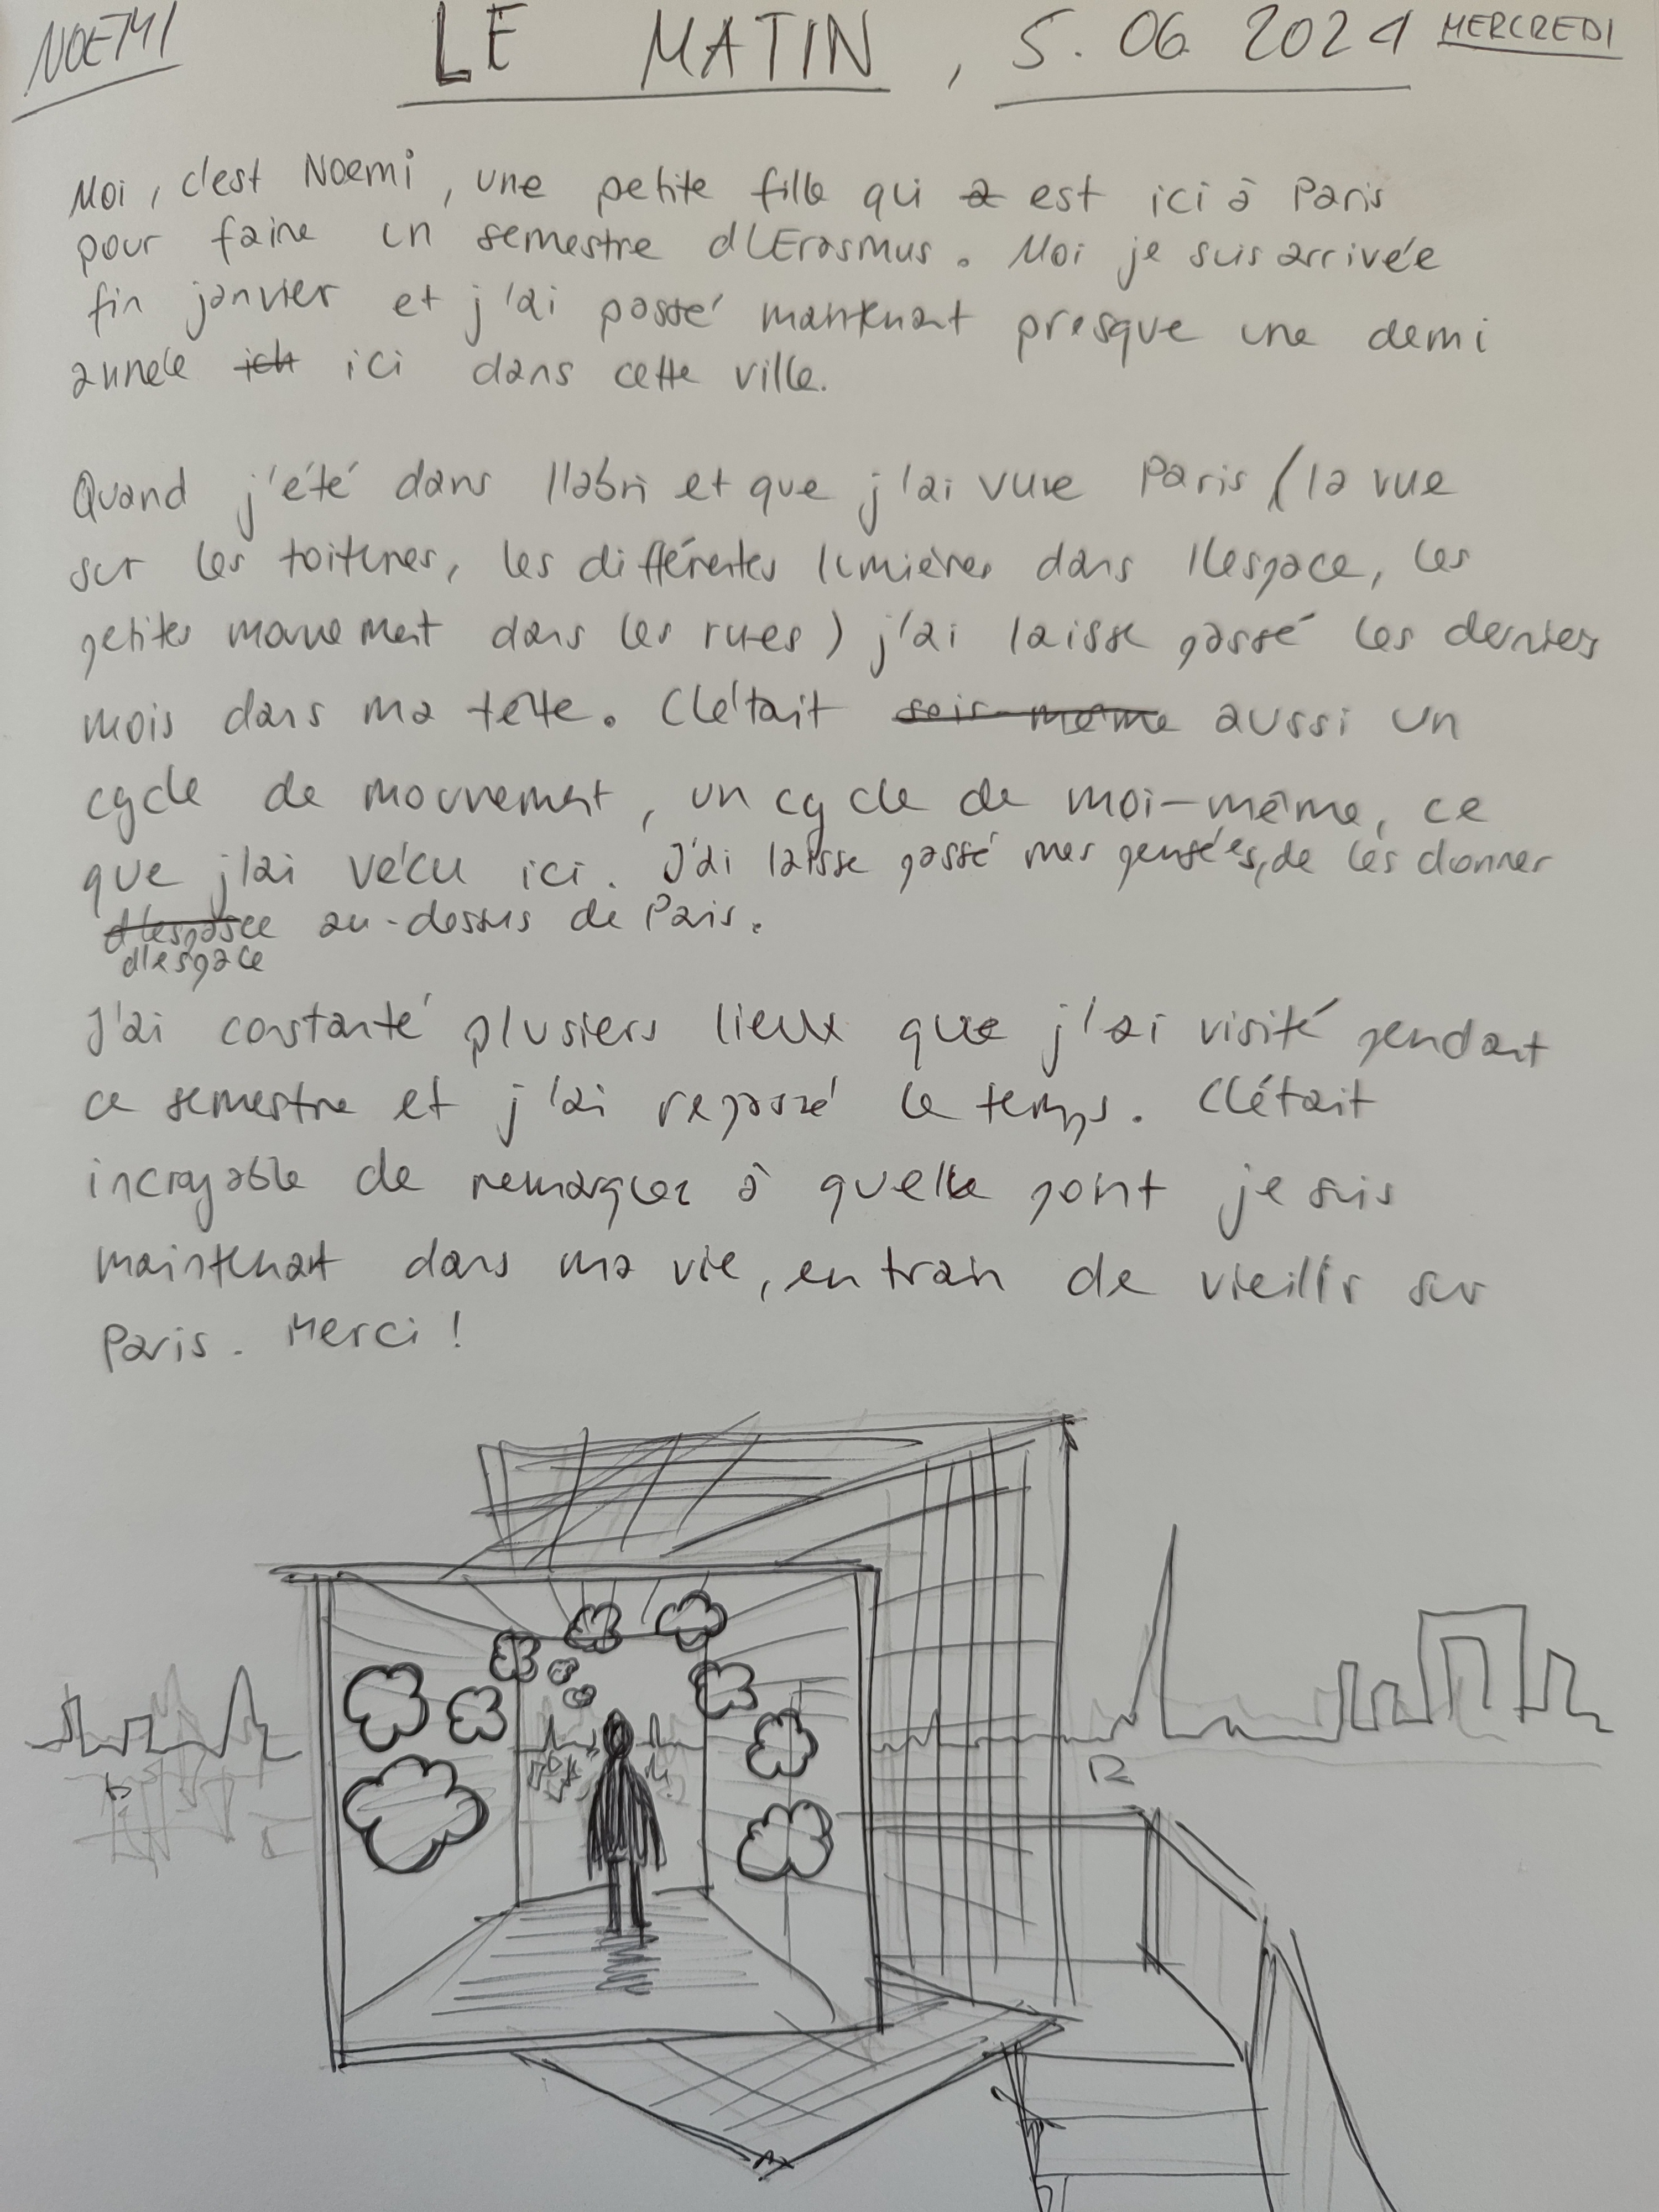 NOEMI
LE MATIN, 5.06 2024 MERCREDI
Moi, c'est Noemi, une petite fille qui a est ici à Paris
pour faire un semestre d'Erasmus. Moi je suis arrivée
fin janvier et j'ai passé maintenant presque une demi
année ich ici dans cette ville.
Quand j'été dans l'abri et que j'ai vue Paris (la vue
sur les toitures, les différentes lumières dans l'espace, les
petites mouvement dans les rues) j'ai laisse passé les derniers
mois dans ma tête. C'était soir-même aussi un
cycle de mouvement, un cycle de moi-même, ce
que j'ai vécu ici. J'ai laisse passé mes pensées, de les donner
d'espasce au-dessus de Paris.
d'espace
J'ai constanté plusiers lieux que j'ai visité pendant
ce semestre et j'ai repassé le temps. C'était
incroyable de remarquer à quelle point je suis
maintenant dans ma vie, en train de vieillir sur
Paris. Merci!